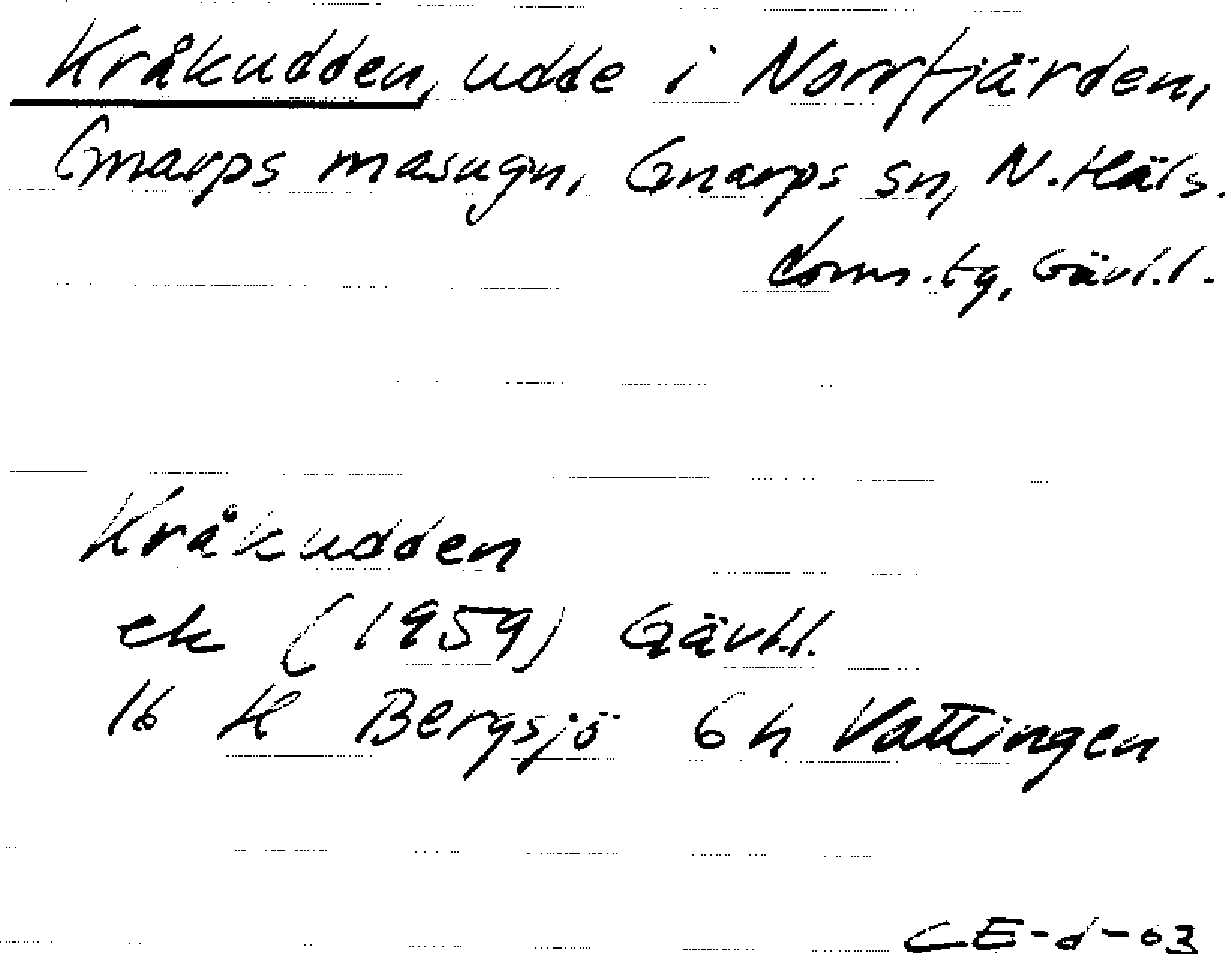 Kråkudden, udde i Norrfjärden,
Gnarps masugn, Gnarps sn, N. Häls.
doms.tg, Gävl.l.
Kråkudden
ek (1959) Gävl.l.
16 H Bergsjö 6 h Vattingen
CE-d-03